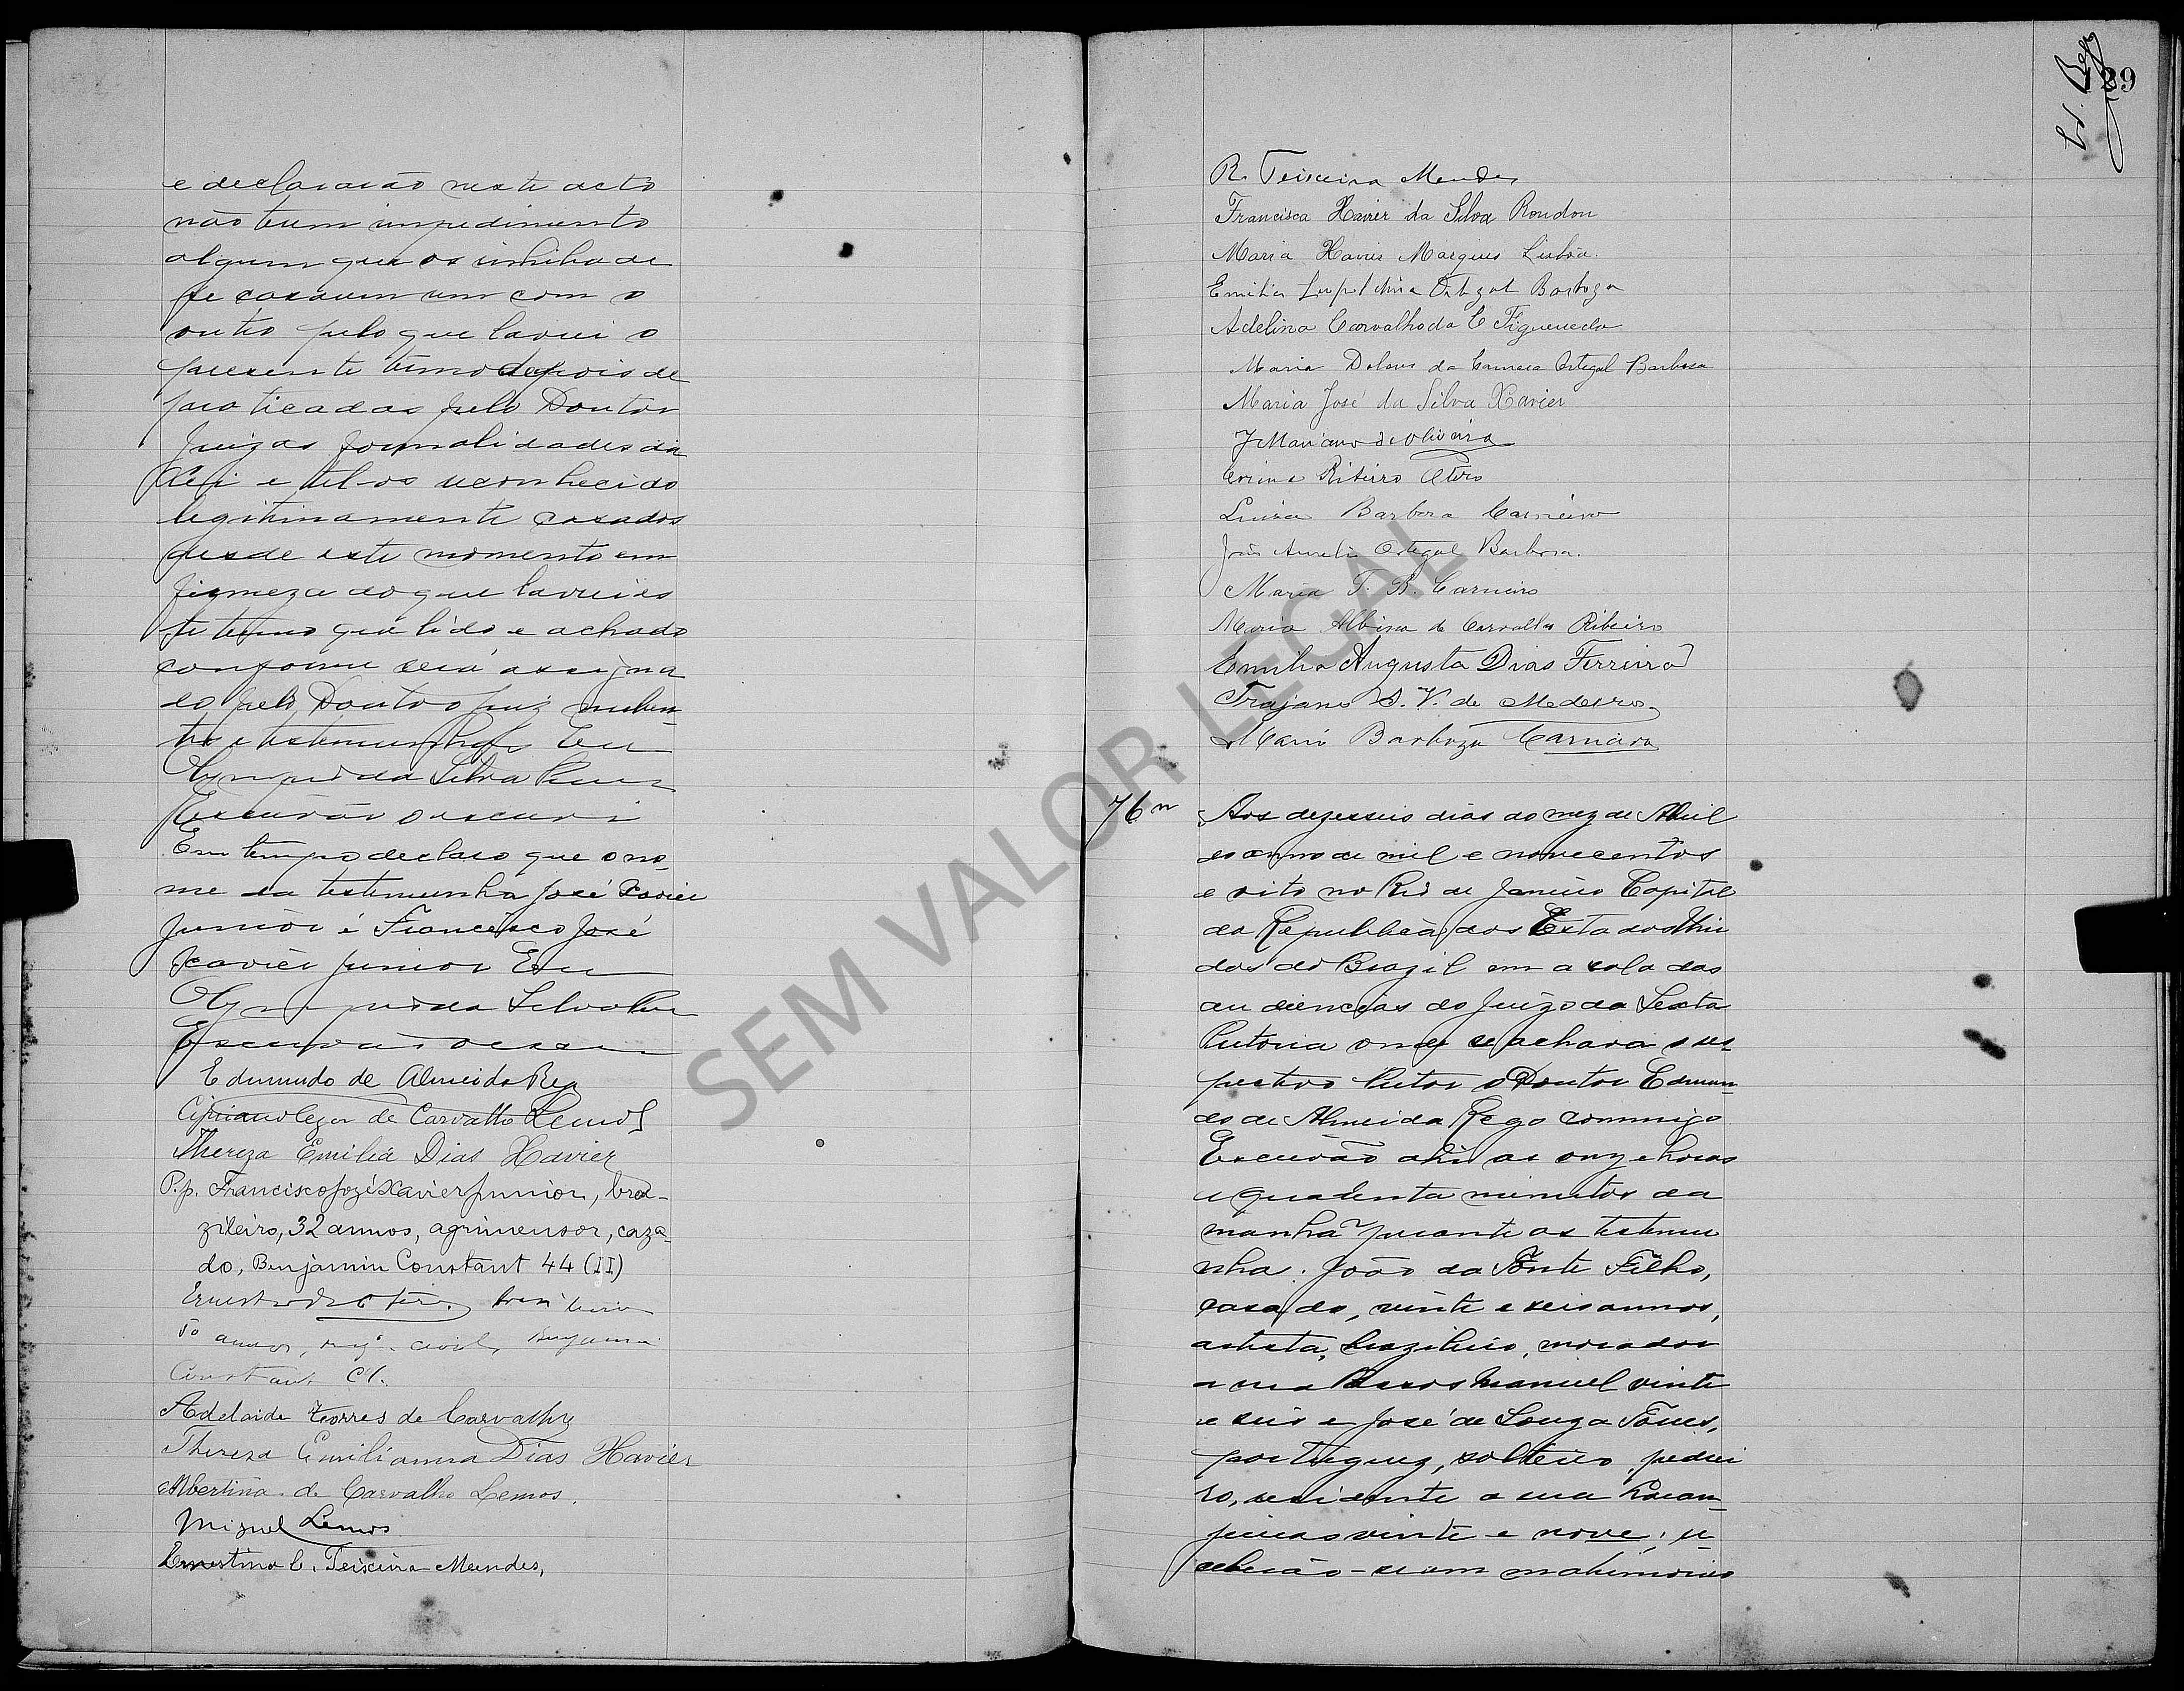 e declararão neste acto
não terem impedimento
algum que os inhiba de
se casarem um com o
outro pelo que lavrei o
presente termo depois de
praticadas pelo Doutor
Juiz as formalidades da
Lei e tel-os reconhecido
legitimamente casados
desde este momento em
firmeza do que lavrei es
te termo que lido e achado
conforme será assigna
do pelo Doutor Juiz nuben-
tes e testemunhas Eu
da Silva
Escrivão o escrevi
Em tempo declaro que o no-
me da testemunha José Xavier
Junior é Francisco José
Xavier Junior Eu
da Silva
Escrivão
Edmundo de Almeida Rego
Cipriano Cezar de Carvalho Lemos
Thereza Emilia Dias Xavier
P.p. Francisco Jozé Xavier Junior, bra-
zileiro, 32 annos, agrimensor, caza-
do, Benjamin Constant 44 (II)
Ernesto de Otero, brazileiro
50 annos, eng. civil, Benjamin
Constant
Adelaide Torres de Carvalho
Thereza Emilianna Dias Xavier
Albertina de Carvalho Lemos.
Miguel Lemos
Ernestina C. Teixeira Mendes,
89
R. Teixeira Mendes
Francisca Xavier da Silva Rondon
Maria Xavier Marques Lisbôa.
Emilia Ortegal Barboza
Adelina Carvalho da C Figueredo
Maria Dolores da Camara Ortegal Barbosa
Maria José da Silva Xavier
J Mariano de Oliveira
Corina Ribeiro Otero
Luiza Barbosa Carneiro
João Aurelio Ortegal Barbosa.
Maria T. B. Carneiro
Maria Albina de Carvalho Ribeiro
Emilia Augusta Dias Ferreira
Trajano S. V. de Medeiros
Mario Barboza Carneiro
76 Aos dezesseis dias do mez de Abril
do anno de mil e novecentos
e oito no Rio de Janeiro Capital
da Republica dos Estados Uni
dos do Brazil em a sala das
audiencias do Juizo da Sexta
Pretoria onde se achava o res-
pectivo Pretor o Doutor Edmun-
do de Almeida Rego commigo
Escrivão ahi as onze horas
e quarenta minutos da
manhã perante as testemu
nhas: João da Fonte Filho,
casado, vinte e seis annos,
artista, brazileiro, morador
a rua Passos Manuel vinte
e seis e José de Souza Torres,
portuguez, solteiro, pedrei
ro, residente a rua Laran-
jeiras vinte e nove; re-
ceberão-se em matrimonio
SEM VALOR LEGAL